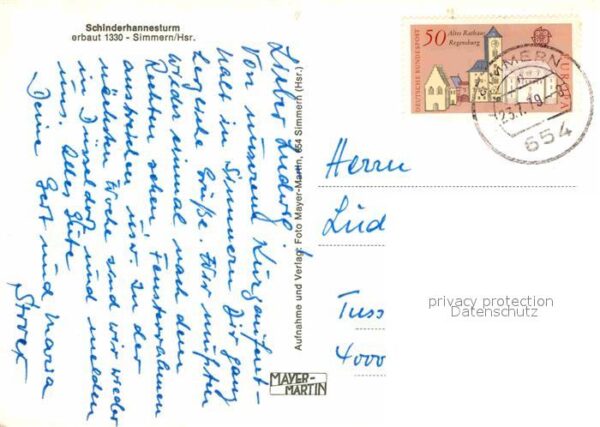 Schinderhannesturm
erbaut 1330 - Simmern/Hsr.
Lieber Ludwig!
Von unserem Kurzaufent-
halt in Simmern Dir ganz
herzliche Grüße. Wir mußten
wieder einmal nach dem
Rechten sehen, Fensterrahmen
usw. In der
nächsten Woche sind wir wieder
in Düsseldorf und melden
uns. Alles Gute
Deine Gert und Maria
Aufnahme und Verlag: Foto Mayer-Martin, 654 Simmern (Hsr.)
MAYER-
MARTIN
50 Altes Rathaus
Regensburg
DEUTSCHE BUNDESPOST
EUROPA
SIMMERN
654
Herrn
Lud
Tuss
4000
privacy protection
Datenschutz